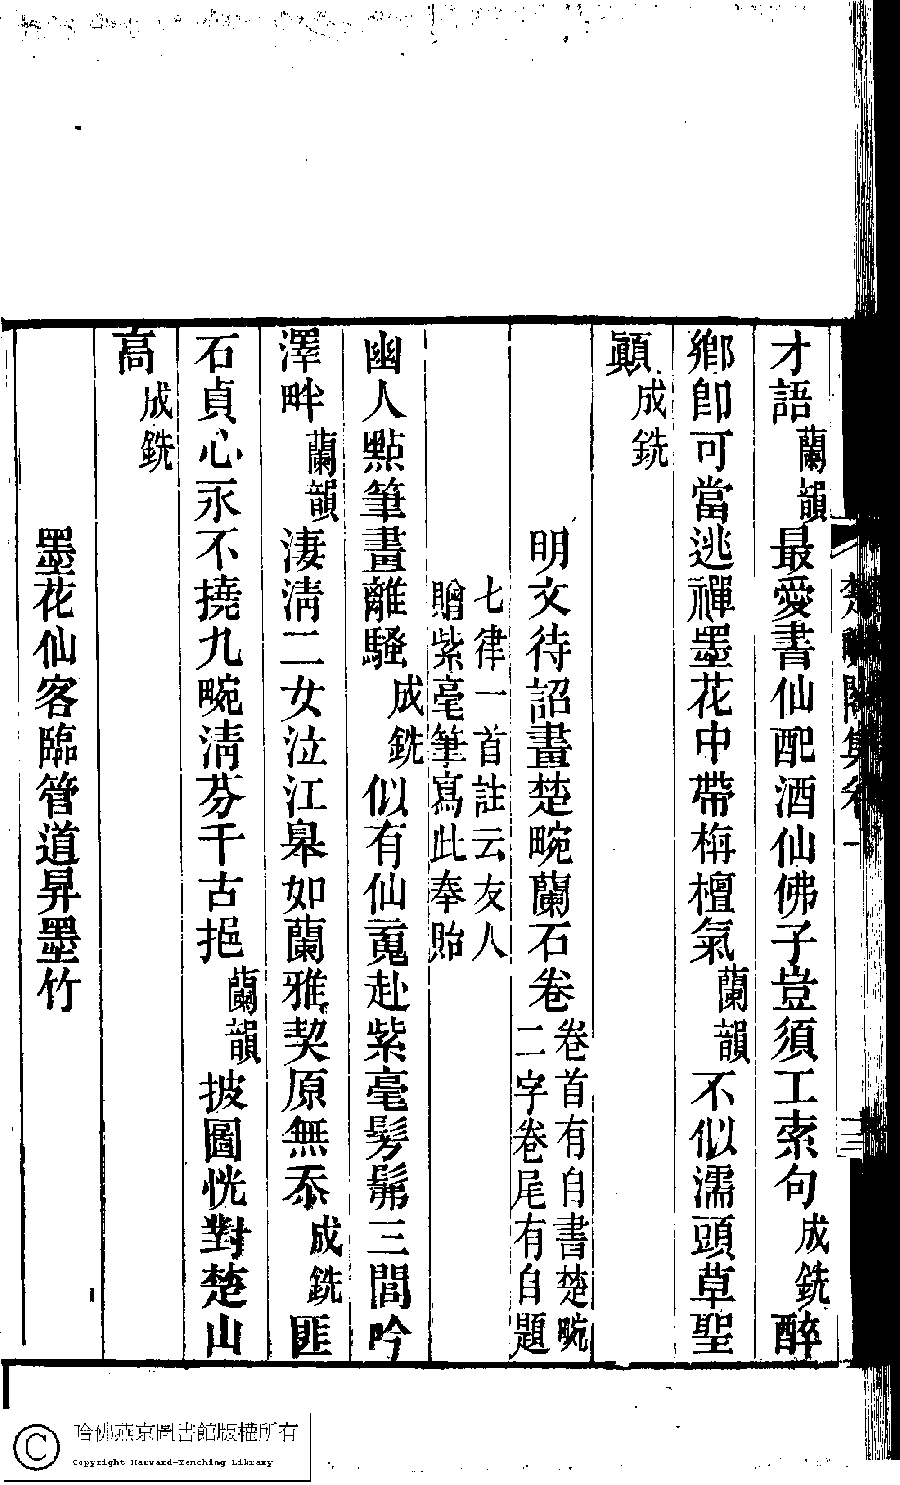 才語蘭韻最愛書仙配酒仙佛子豈須工索句成銑醉
鄉卽可當逃禪墨花中帶栴檀氣蘭韻不似濡頭草聖
顚成銑
明文待詔畫楚畹蘭石卷卷首有自書楚畹
二字卷尾有自題
七律一首註云友人
贈紫毫筆寫此奉貽
幽人點筆畫離騷成銑似有仙䰟赴紫毫髣髴三閭吟
澤畔蘭韻淒淸二女泣江皋如蘭雅契原無忝成銑匪
石貞心永不撓九畹淸芬千古挹蘭韻披圖恍對楚山
高成銑
墨花仙客臨管道昇墨竹
哈佛燕京圖書館版權所有
Copyright Harvard-Yenching Library